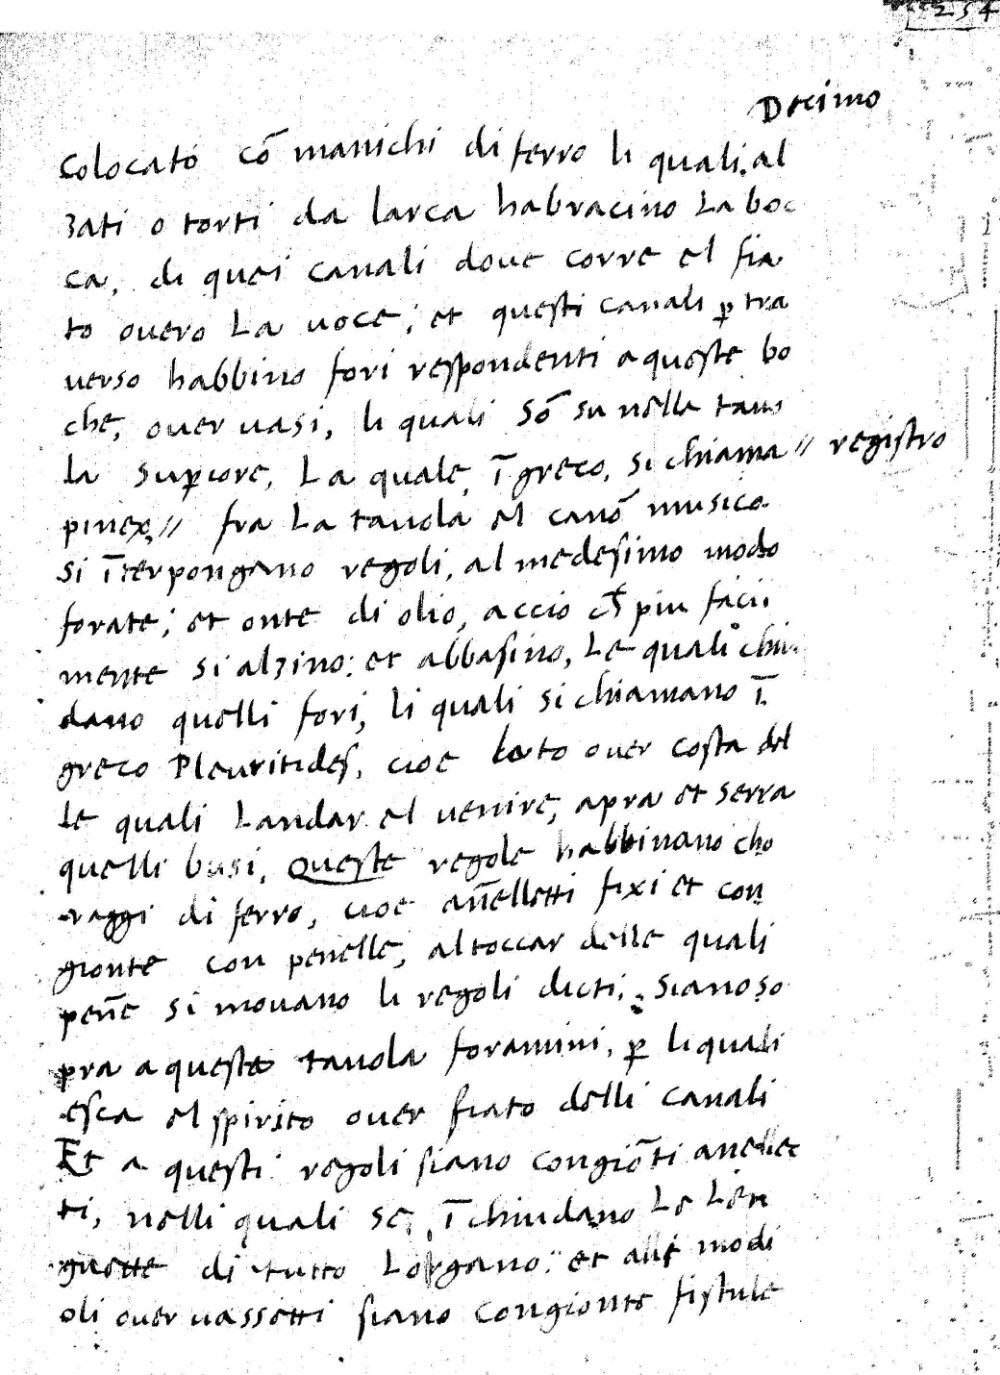 254
Decimo
Colocato cō manichi di ferro li quali, al
zati o torti da larca habracino La boc
ca, di quei canali doue corre el fia
to ouero La uoce; et questi canali p tra
uerso habbino fori respondenti a queste bo
che, ouer uasi, li quali Sō su nella tauo
la Supiore, La quale, ī greco, si chiama // registro
pinex, // fra La tauola el canō musico
si īterpongano regoli, al medesimo modo
forate; et onte di olio, accio ch piu facil
mente si alzino: et abbasino, Le quali chiu
dano quelli fori, li quali si chiamano ī
greco Pleuritides, cioe Lato ouer costa del
le quali Landar el uenire, apra et serra
quelli busi, Queste regole habbinano cho
raggi di ferro, cioe an̄elletti fixi et con
gionte con penelle, al toccar delle quali
pen̄e si mouano li regoli dicti, Siano so
pra a queste tauola foramini, p li quali
esca el spirito ouer fiato delli canali
Et a questi regoli siano congiōti anellet
ti, nelli quali se īchiudano Le Len
guette di tutto Lorgano: et alli modi
oli ouer uassetti siano congionte fistule